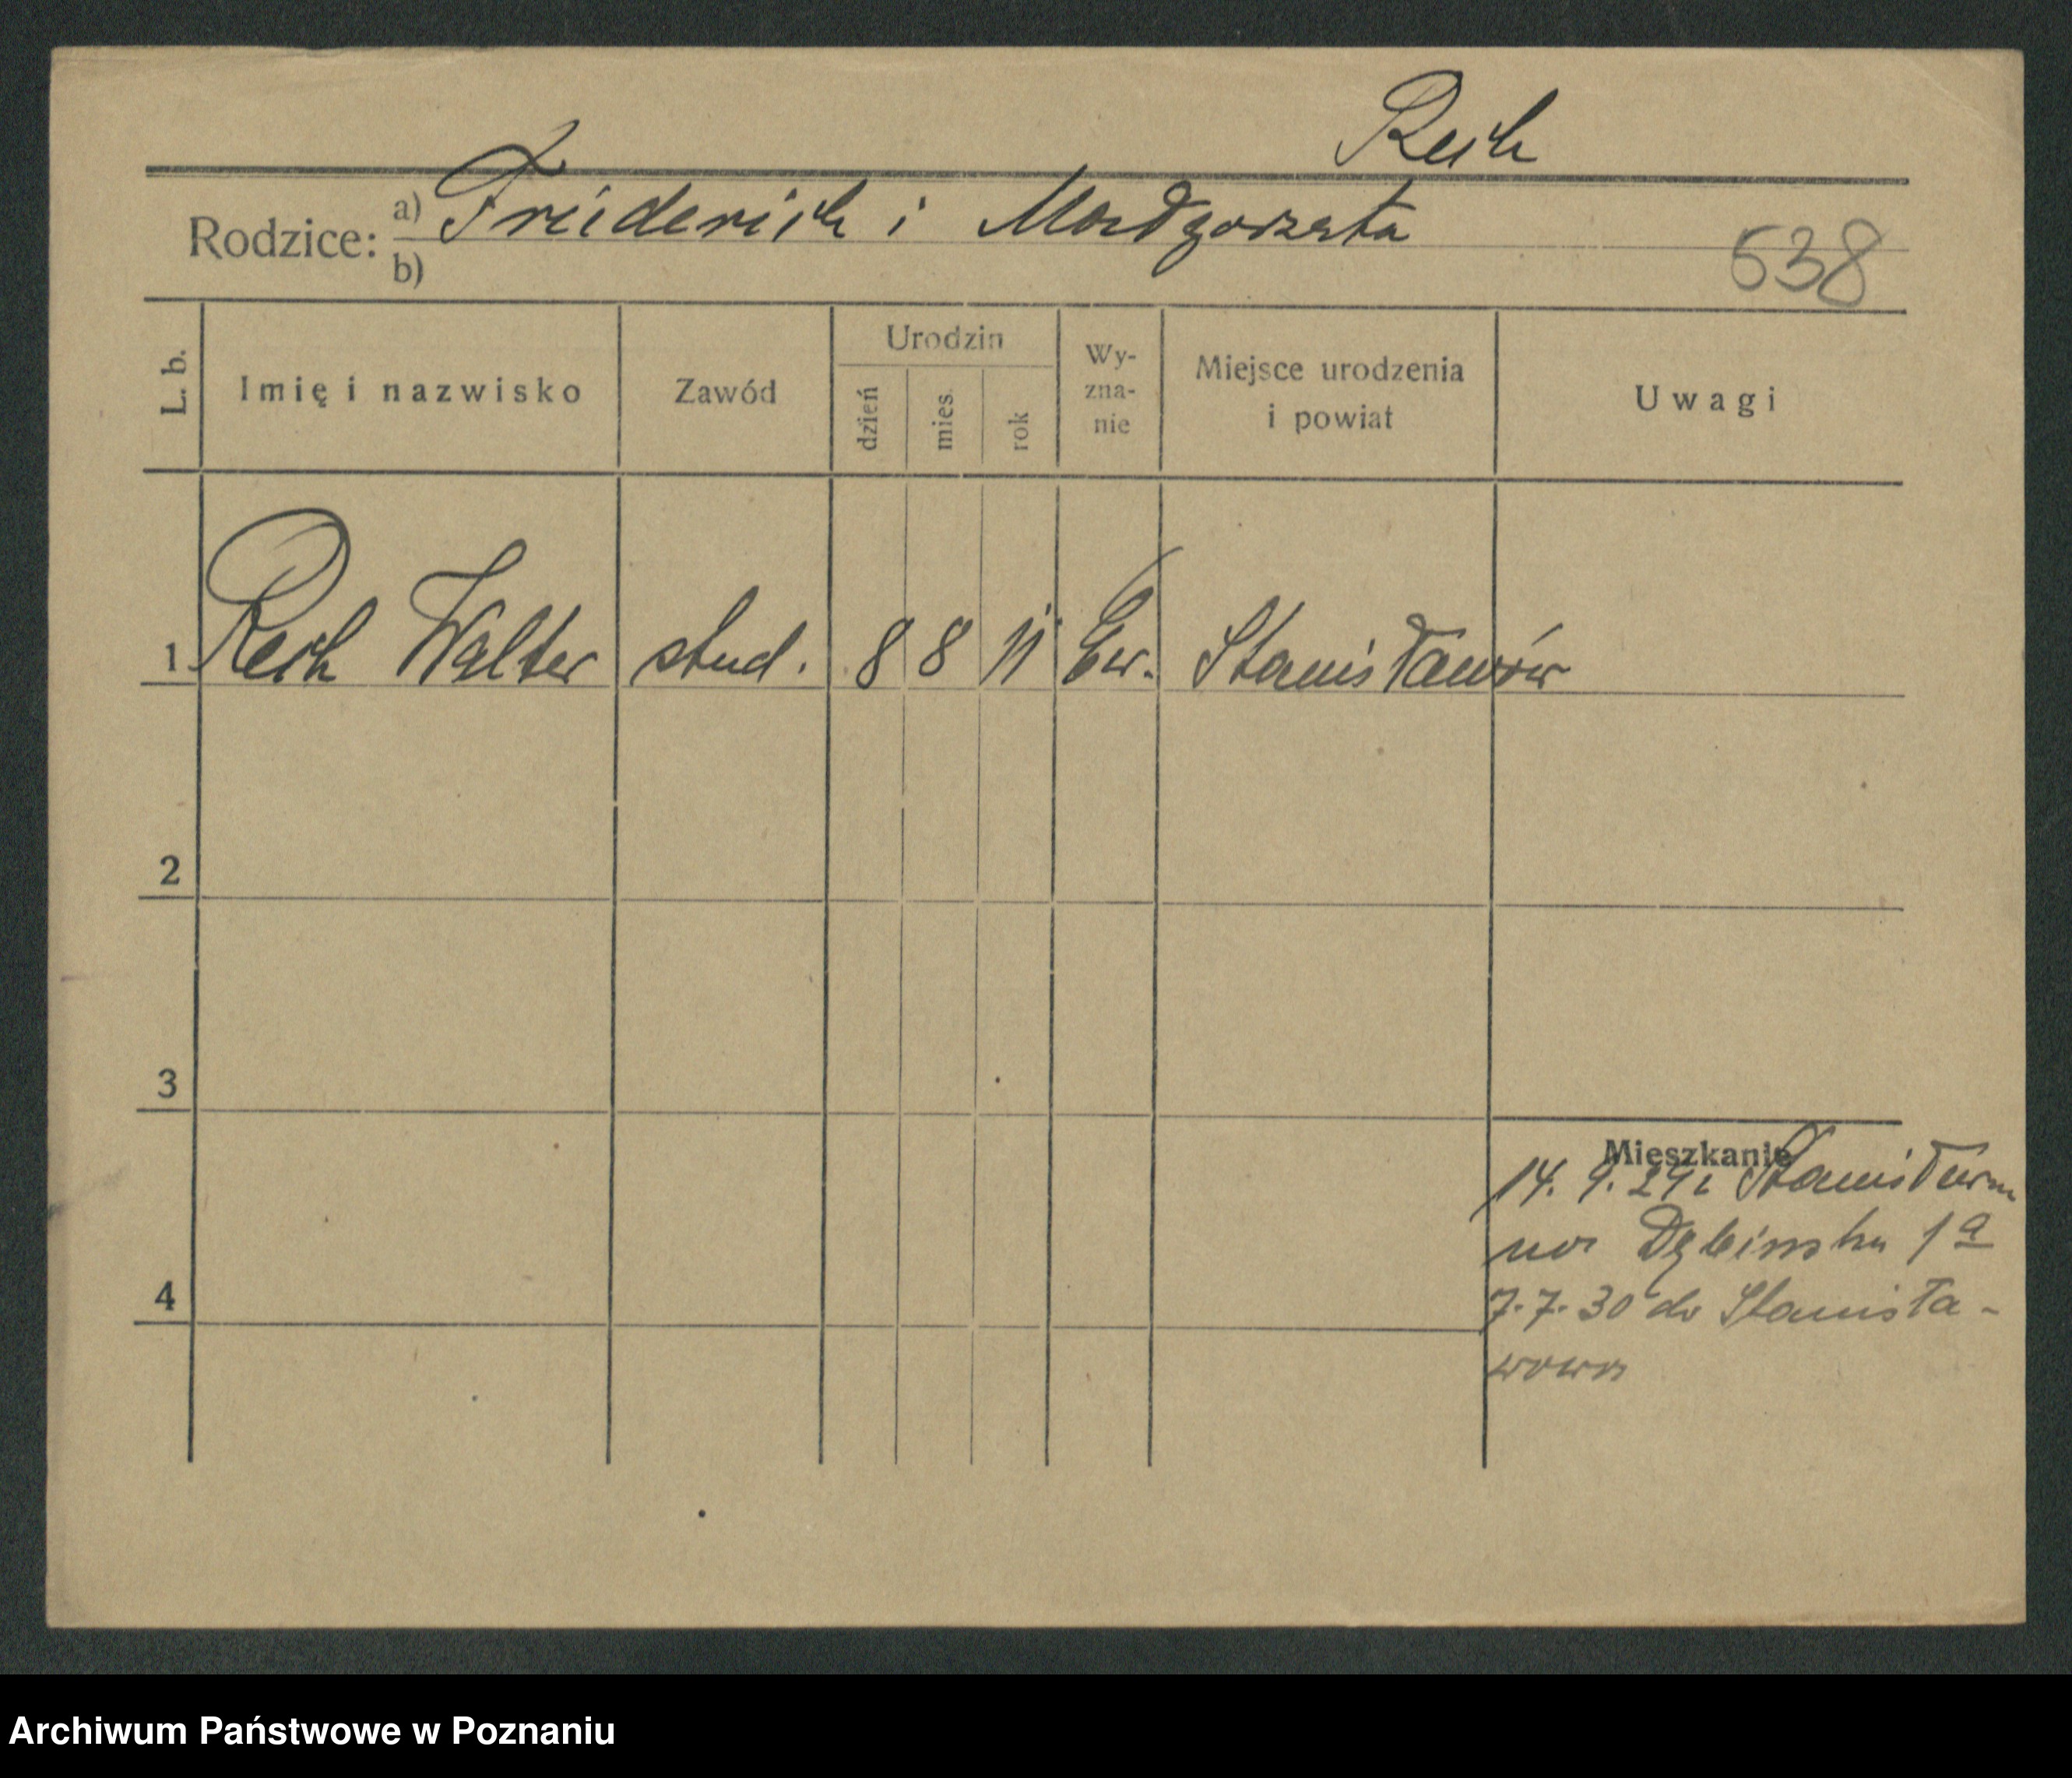 Reich
Rodzice: a) Friederich i Małgorzata
b)
538
L. b. Imię i nazwisko Zawód Urodzin dzień mies. rok Wy-zna-nie Miejsce urodzenia i powiat Uwagi
1 Reich Walter stud. 8 8 11 Ew. Stanisławów
2
3
Mieszkanie
14. 9. 29 z Stanisławowa
na Dębińska 1a
4
7.7.30 do Stanisła-
wowa
Archiwum Państwowe w Poznaniu